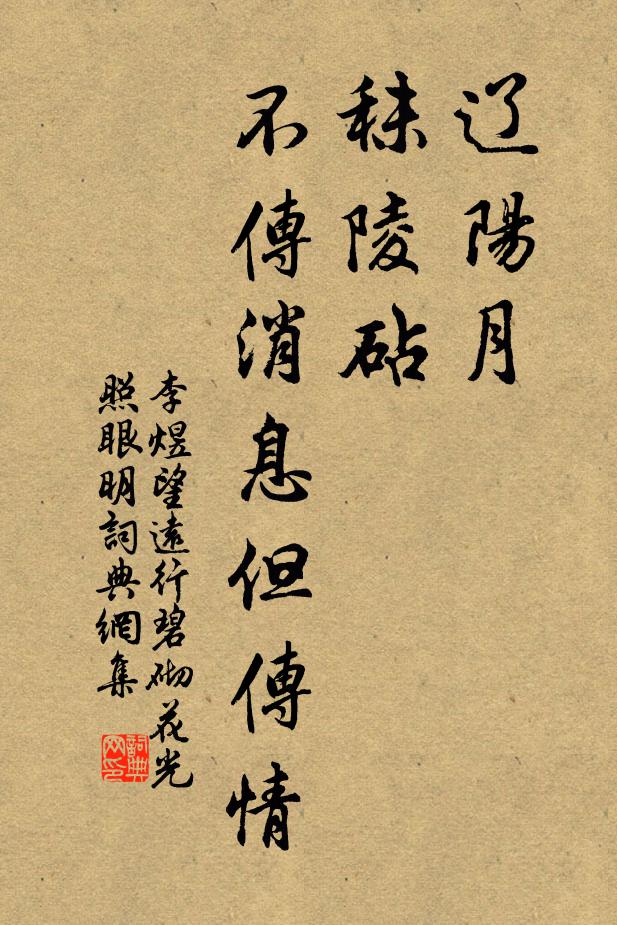 辽陽月
秣陵砧
不傳消息但傳情
李煜望遠行碧砌花光
照眼明詞典網集
詞典
网印